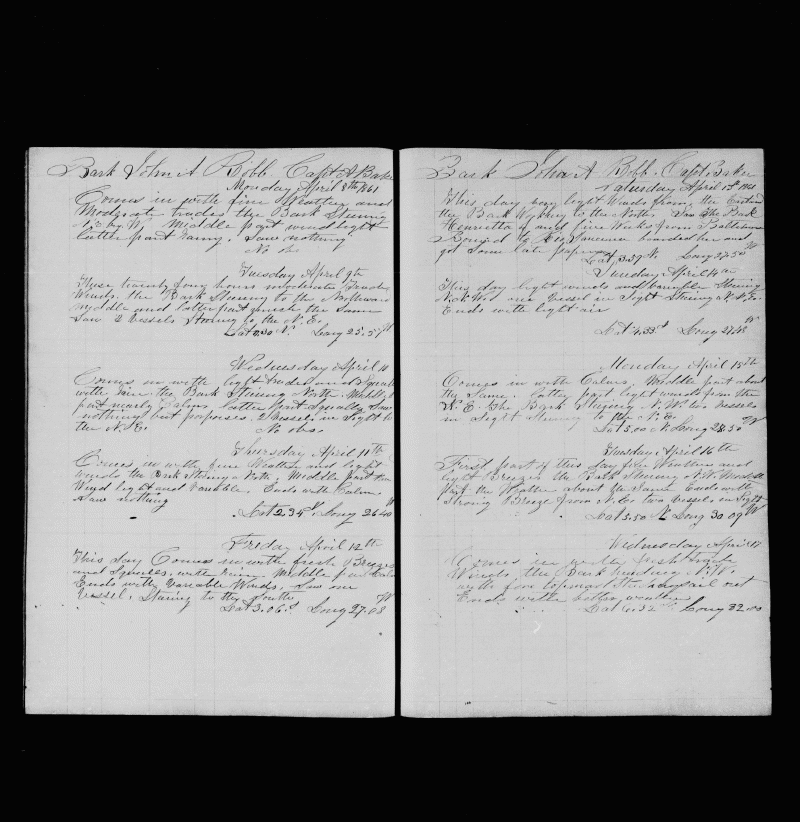 Bark John A Robb. Capt A Baker
Monday April 8th 1861
Comes in with fine Weather and
Moderate trades the Bark Steering
N by W Middle part wind light
latter part rainy. Saw nothing
No obs
Tuesday April 9th
These twenty four hours moderate trade
Winds. the Bark Steering to the Northward
Middle and latter part much the Same
Saw 2 Vessels Staring to the N. E.
Lat 0.30 N. Long 25.57 W
Wednesday April 10
Comes in with light trades and Squalls
with rain the Bark Steering North. Middle
part nearly Calm. latter part Squally. Saw
nothing but porpoises. 2 Vessels in Sight to
the N. E. No obs.
Thursday April 11th
Comes in with fine Weather and light
winds the Bark Steering North. Middle part
Wind light and Variable. Ends with Calm
Saw nothing
Lat 2.34 N. Long 26.40 W
Friday April 12th
This day Comes in with fresh Breezes
and Squalls, with rain Middle part
Ends with Variable Winds. Saw one
Vessel, Staring to the South
Lat 3.06 N Long 27.08 W
Bark John A Robb. Capt Baker
Saturday April 13th 1861
This day very light Winds from the Eastward
the Bark to the North. Saw the Bark
Henrietta of and five Weeks from Baltimore
Bound to boarded her and
got Some late papers
Lat 3.39 N. Long 27.50 W
Sunday April 14th
This day light winds and Steering
N.N.W. one Vessel in Sight Steering N.N.E.
Ends with light air
Lat 4.33 N Long 27.48 W
Monday April 15th
Comes in with Calms. Middle part about
the Same. latter part light winds from the
N. E. the Bark Steering N.W. two Vessels
in Sight Steering to the N. E.
Lat 5.00 N Long 28.50 W
Tuesday April 16th
First part of this day fine Weather and
light Breezes the Bark Steering N.W. Middle
Part the Weather about the Same Ends with
Strong Breeze from N.E. two Vessels in Sight
Lat 5.50 N Long 30.09 W
Wednesday April 17
Comes in with fresh trade
Winds, the Bark heading N.W.
with fore topmast Sail set
Ends with better weather
Lat 6.32 N. Long 32.00